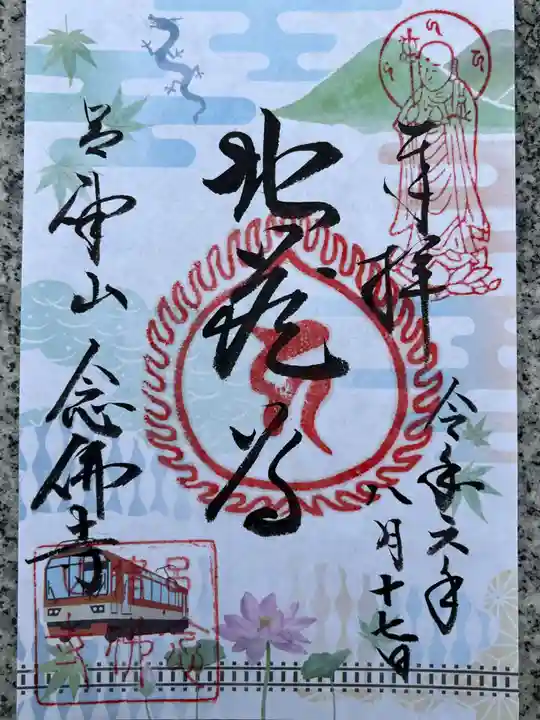 奉拝
令和六年
八月十七日
地蔵尊
呂山 念佛寺